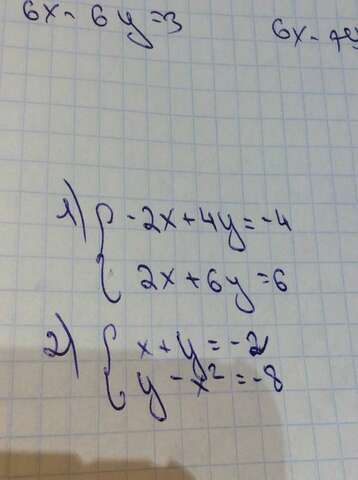 6x - 6y = 3
6x - 4y
1) { -2x + 4y = -4
2x + 6y = 6
2) { x + y = -2
y - x² = -8